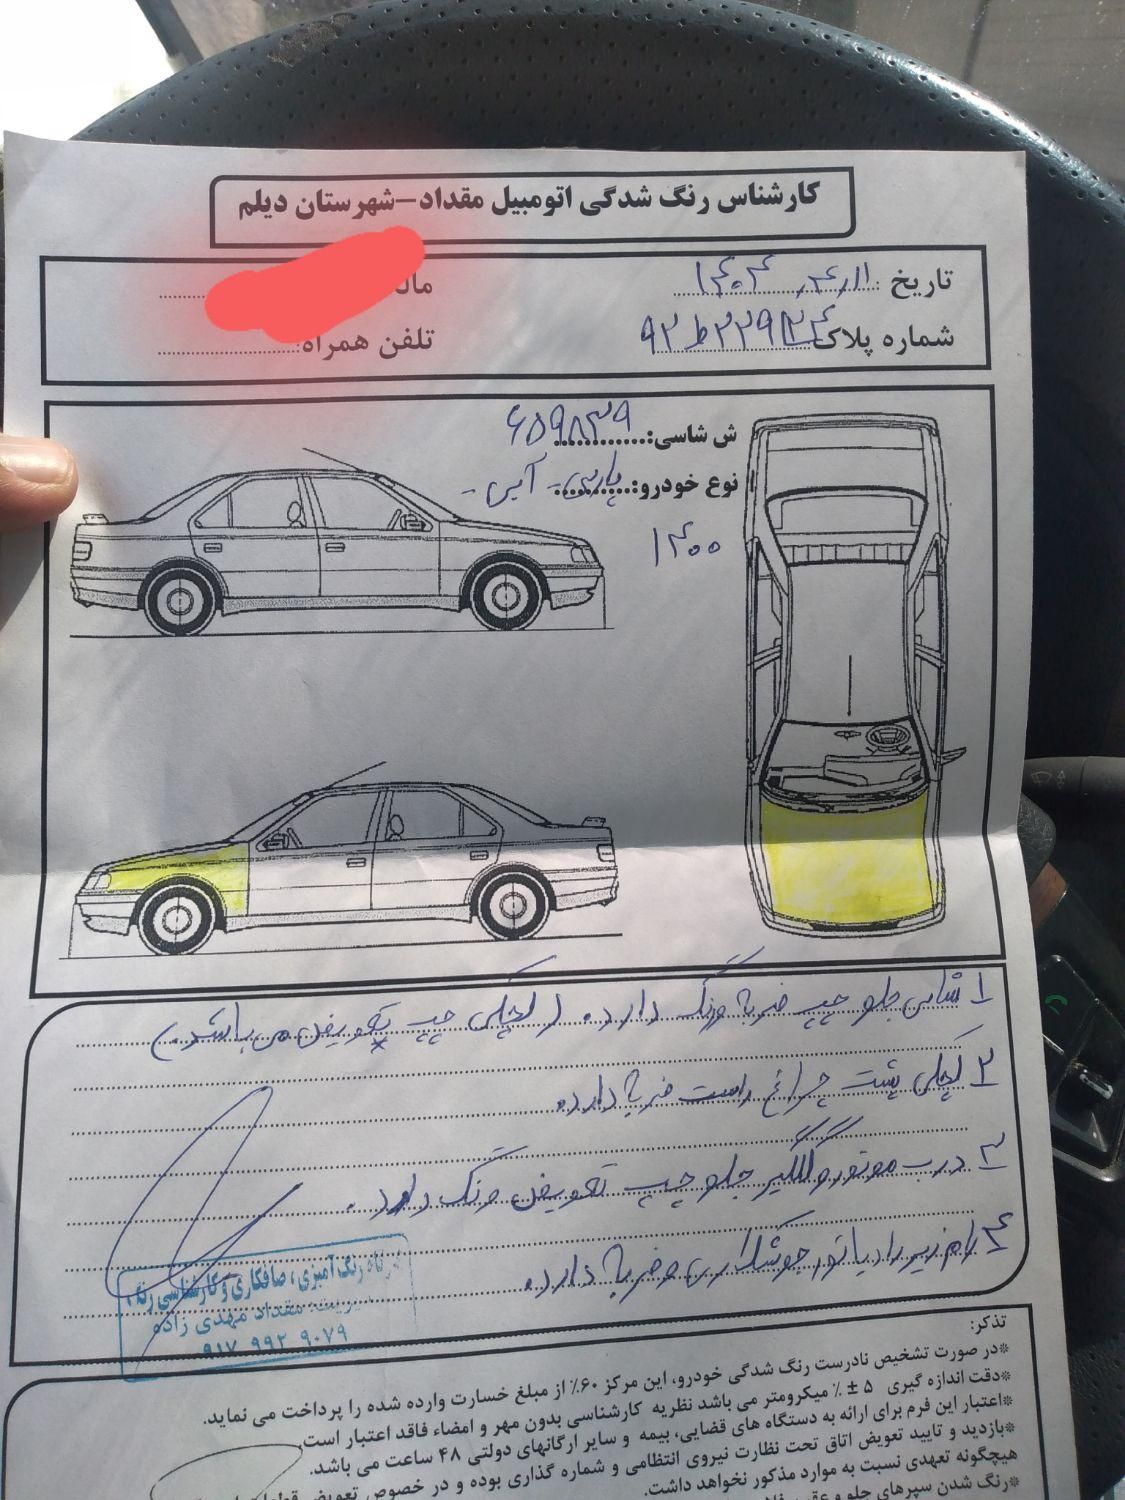 کارشناس رنگ شدگی اتومبیل مقداد-شهرستان دیلم
تاریخ: ۱۴۰۴,۴,۱۱
شماره پلاک
تلفن همراه:
ش شاسی: ۶۵۹۸۳۹
نوع خودرو: پارس - آبی -
۱۴۰۰
۱ شاسی جلو چپ ضربه و رنگ دارد. (لچکی چپ تعویض می باشد.)
۲ لچکی پشت چراغ راست ضربه دارد.
۳ درب موتور و گلگیر جلو چپ تعویض و رنگ دارد.
۴ رام زیر رادیاتور جوشکاری و ضربه دارد.
رنگ آمیزی، صافکاری و کارشناسی رنگ
مدیریت: مقداد مهدی زاده
۰۹۱۷ ۹۹۲ ۹۰۷۹
تذکر:
*در صورت تشخیص نادرست رنگ شدگی خودرو، این مرکز ۶۰٪ از مبلغ خسارت وارده شده را پرداخت می نماید.
*دقت اندازه گیری ۵ ± ٪ میکرومتر می باشد نظریه کارشناسی بدون مهر و امضاء فاقد اعتبار است.
*اعتبار این فرم برای ارائه به دستگاه های قضایی، بیمه و سایر ارگانهای دولتی ۴۸ ساعت می باشد.
*بازدید و تایید تعویض اتاق تحت نظارت نیروی انتظامی و شماره گذاری بوده و در خصوص تعویض
هیچگونه تعهدی نسبت به موارد مذکور نخواهد داشت.
*رنگ شدن سپرهای جلو و